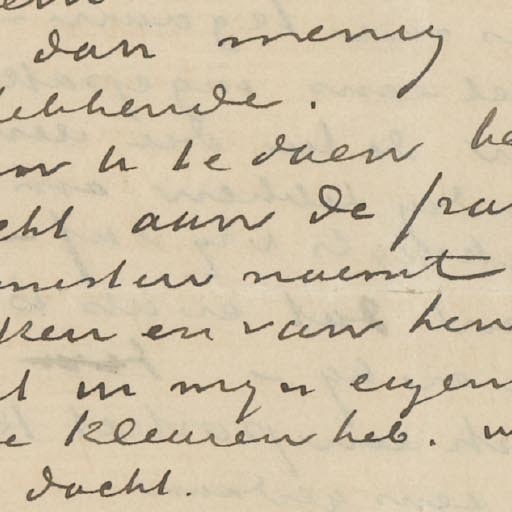 dan menig
hebbende.
om U te doen
cht aan de
noemt
ken en van hen
t in mijn eigen
e kleuren heb.
dacht.